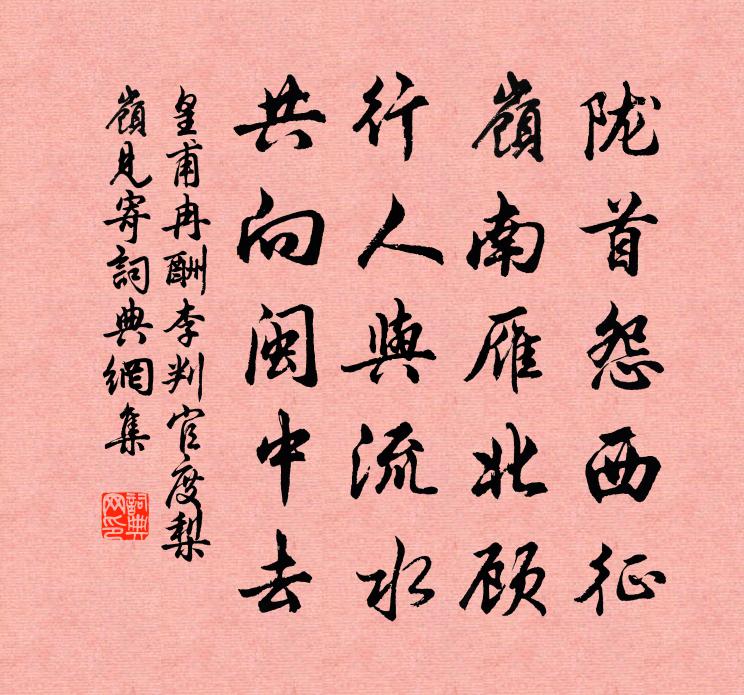 陇首怨西征
嶺南雁北顾
行人與流水
共向闽中去
皇甫冉酬李判官度梨
嶺見寄詞典網集
詞典
网印